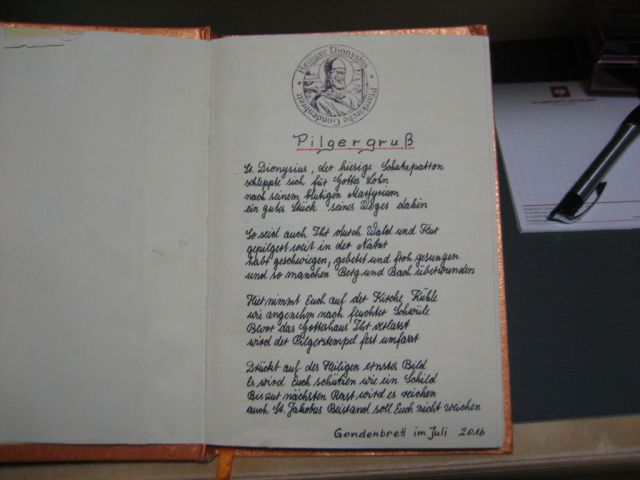 Heiliger Dionysius
Pfarrkirche Gondenbrett
Pilgergruß
St. Dionysius, der hiesige Schutzpatron
schleppte sich für Gottes Lohn
nach seinem blutigen Martyrium
ein gutes Stück seines Weges dahin
So seid auch Ihr durch Wald und Flur
gepilgert weit in der Natur
habt geschwiegen, gebetet und froh gesungen
und so manchen Berg und Bach überwunden
Hier nimmt Euch auf der Kirche Kühle
wie angenehm nach feuchter Schwüle
Bevor das Gotteshaus Ihr verlasst
wird der Pilgerstempel fest umfasst
Drückt auf des Heiligen ernstes Bild
Es wird Euch schützen wie ein Schild
Bis zur nächsten Rast wird es reichen
auch St. Jakobus Beistand soll Euch nicht weichen
Gondenbrett im Juli 2016